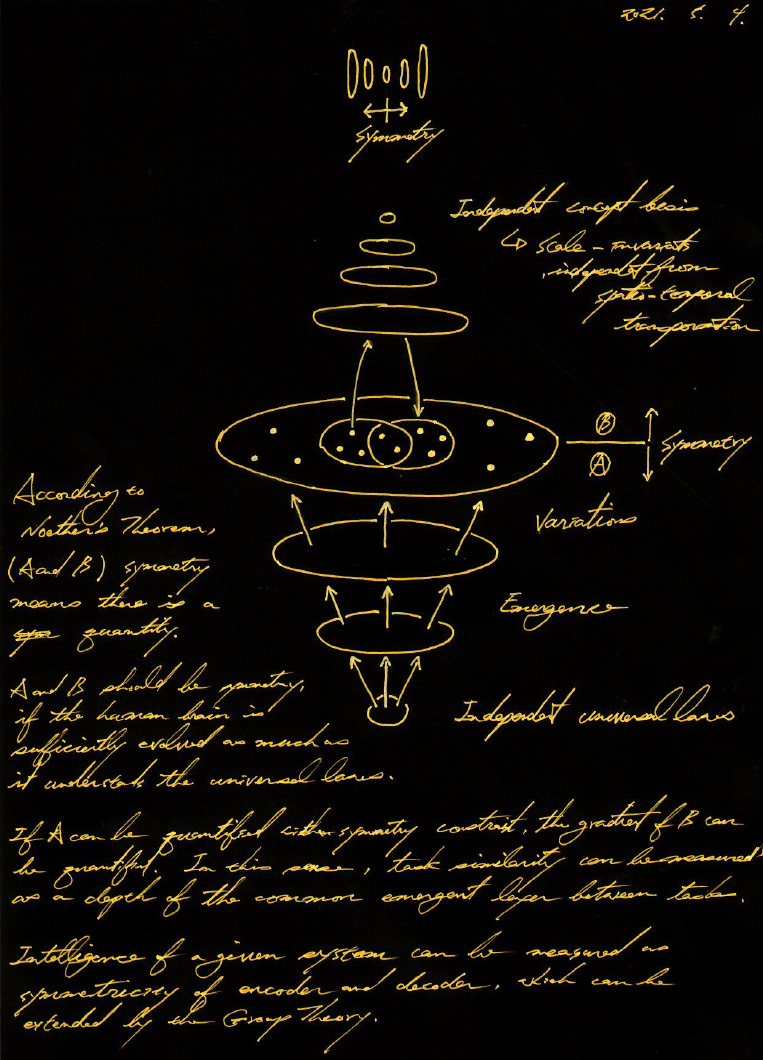 2021. 5. 4.
Symmetry
Independent concept basis
↳ Scale-invariants
independent from
spatio-temporal
transporation
B
A
Symmetry
According to
Noether's Theorem,
(A and B) symmetry
means there is a
quantity.
Variations
Emergence
A and B should be symmetry,
if the human brain is
sufficiently evolved as much as
it understads the universal laws.
Independent universal laws
If A can be quantified with symmetry constraint, the gradient of B can
be quantified. In this sense, task similarity can be measured
as a depth of the common emergent layer between tasks.
Intelligence of a given system can be measured as
symmetricity of encoder and decoder, which can be
extended by the Group Theory.